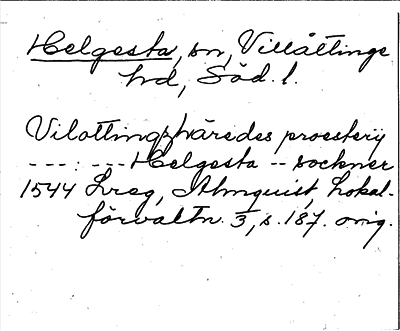 Helgesta, sn, Villåttinge
hd, Söd. l.
Vilottingzhäredes proestery
---:--- Helgesta -- sockner
1544 Lreg, Almquist, Lokal-
förvaltn. 3, s. 187. orig.